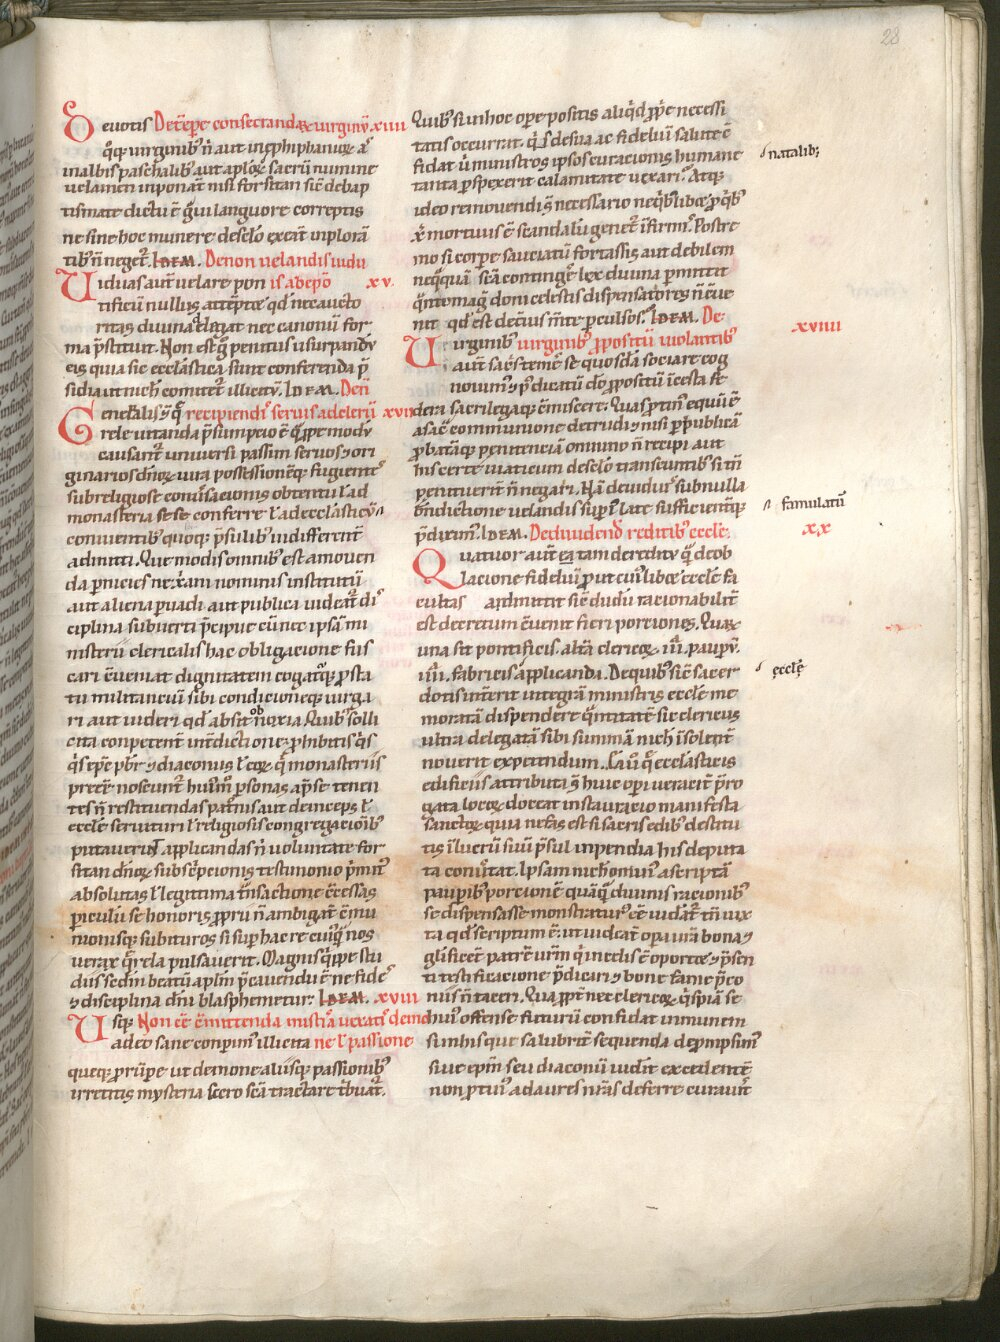 28
Devotis De tēpe consecrandaꝝ virginū xiiii
q̄q; virginibꝰ n̄ aut in ephiphaniaꝝ
in albis paschalibꝰ aut aploꝝ sacrū numine
velamen inponat̄ nisi forsitan sic̄ de bap
tismate dictū ē gͣui languore correptis
ne sine hoc munere de sc̄lo exeāt inplorā
tibꝰ n̄ neget̄. IDEM. De non velandis vidu
Viduas aut̄ velare pon is ab ep̄o xv.
tificū nullus attēptet qd̄ nec aucto
ritas divina delegat nec canonū for
ma p̄stituit. Non est ḡ penitus usurpandū
eis qͥa sic ecclāstica sunt conferenda p̄
sidia ut nich̄ comitet̄ illicitū. IDEM. De n̄
Generalis &; q̄ recipiendiˢ servis ad clerū xvii
rele vitanda p̄sumpcio ē q̄ ꝓpe modū
causant̄ universi passim servos & ori
ginarios dn̄oꝝ iura possessionūq; fugientes
sub religiose conv̄saciomis obtentu ł ad
monasteria sese conferre ł ad ecclāsticū
conniventibꝰ quoq; p̄sulibꝰ indifferent̄
admitti. Que modis omnibꝰ est amoven
da pernicies ne xp̄iani nominis institutū
aut aliena pvadi aut publica videat̄ di
ciplina subverti p̄cipue cū nec ipsā mi
nisterii clericalis hac obligacione fus
cari ɔveniat dignitatem cogatq; ꝓ sta
tu militanciū sibi condicionēq; iurga
ri aut videri qd̄ absit obnoxia Quibꝰ solli
cita conpetent̄ int̄dictione ꝓhibitis
q̄s ep̄e p̄br̄ & diaconus ł eoꝝ q̄ monasteriis
preēē noscunt̄ hui'm̄ ꝑsonas ap̄ se tenen
tes n̄ restituendas pat̄nis aut deinceps ł
eccłe servituri ł religiosis congregacoībꝰ
putaverint applicandas n̄ voluntate for
sitan dn̄oꝝ sub sc̄pcionis testimonio p̄mit̄
absolutas ł legittima tn̄sactione ɔcessas
piculū se honoris ꝓprii n̄ ambigat ɔmu
nionisq; subituros si sup hac re cuiq̄ nos
verax qͣrela pulsaverit. Magnis q̄ppe stu
diis sc̄dm beatū aplm̄ p̄cavendū ē ne fides
& disciplina dn̄i blasphemetur: IDEM. xviii
Usq; Non ēē ɔmittenda mist̄ia vexatis demō
adeo sane conpim̄ illicita ne ł passione
queq; ꝓrūpe ut demone aliisq; passionibꝰ
irretitis mysteria sacro scā tractare tͥbuat̄.
Quibꝰ si in hoc ope positis aliqͥd ꝓpe necessi
tatis occurrit. qͥs de sua ac fideliū salute ɔ
fidat ū ministros ipsos curaciomis humane
tanta pspexerit calamitate vexari. Atq;
ideo removendi s̄ necessario ne qͥbꝰlibet ꝓ qͥbꝰ
xp̄c mortuus ē scandalū generet̄ īfirmis. Postre
mo si corpe sauciatū fortassis aut debilem
neq̄quā scā contingere lex divina pmittit
qͣntomaḡ doni celestis dispensatores n̄ ɔve
nit qd̄ est deciꝰ mn̄te pculsos. IDEM. De
Virginibꝰ virginibꝰ ꝓpositū violantibꝰ
aut̄ sac̄s temē se quosdā sociare cog
novimꝰ & p̄dicatū dō ꝓpositū īcesta fe
dera sacrilegaq; ɔmiscere. Quas ptinꝰ equū ē
a sac̄ communione detrudi & nisi p publicā
ꝓbatāq; penitenciā omnino n̄ recipi aut
his certe viaticum de sclo transcuntibꝰ si tn̄
penituerit̄ n̄ negari. Nā de viduis sub nulla
bn̄dictione velandis supiꝰ late sufficientq;
p̄diximꝰ. IDEM. De dividendˢ reditibꝰ eccłe.
Quatuor aut̄ ea tam de reditu q̄ de ob
lacione fideliū ꝓut cuiꝰlibꝫ eccłe fa
cultas admittit sic̄ dudū racionabilit̄
est decretum ɔvenit fieri porciones. Quaꝝ
una sit pontificis. altā clericoꝝ. iii. paupū.
iiii. fabricis applicanda. De quibꝰ sic̄ sacer
dotis int̄erit integrā ministris eccłe me
moratā dispendere qͣntitatē sic clericus
ultra delegatā sibi summā nich̄ īsolent̄
noverit expetendum. Ea ū q̄ ecclāsticis
edificiis attributa s̄ huic opi veracit̄ p̄ro
gata locoꝝ doceat instauracio manifesta
sanctoꝝ quia nefas est si sacris edibꝰ destitu
tis ī lucrū suū p̄sul inpendia his deputa
ta convtat. Ipsam nich̄ominꝰ ascriptā
pauperibꝰ porcionē quāq̄ divinis racionibꝰ
se dispensasse monstraturꝰ ēē videat̄ tn̄ iux
ta qd̄ scriptum ē: ut videat̄ opa vr̄a bona &
glificent̄ patrē vr̄m q̄ in celis ē oportet & p̄sen
ti testificacione p̄dicari & bone fame p̄co
niis n̄ taceri. Qua ꝓpt̄ nec clericoꝝ q̄spiā se
huiꝰ offense futurū confidat inmunem
si in his que salubrit̄ sequenda depmpsimꝰ
sive ep̄m seu diaconū vidit̄ excedentē
non ptinꝰ ad aures nr̄as deferre curavit̄
natalib;
xviiii
famulatū
xx
eccłę